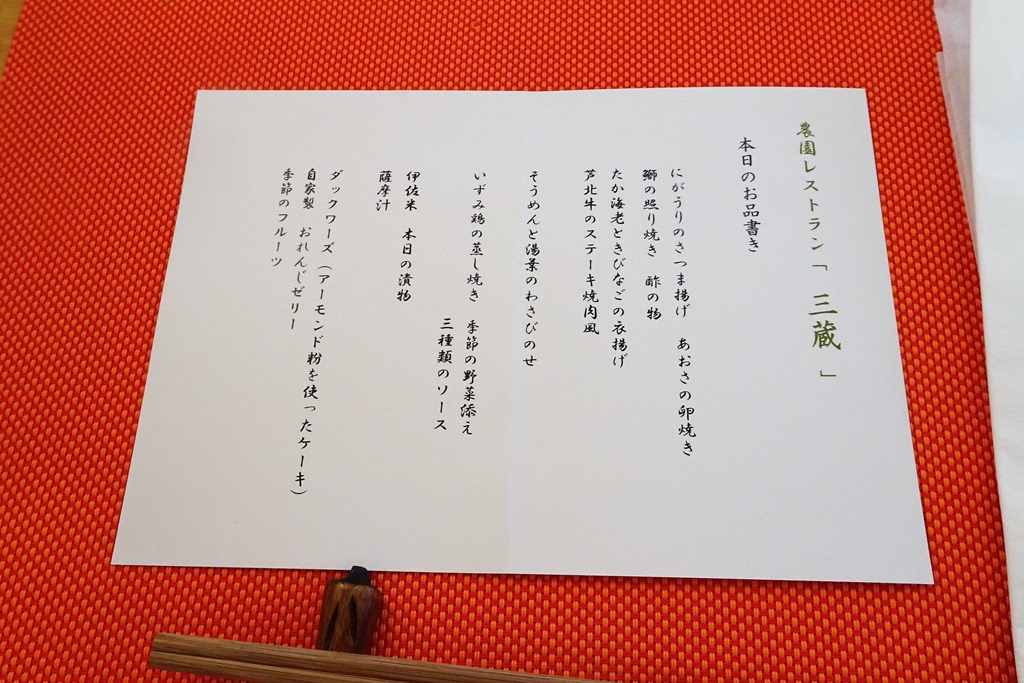 農園レストラン「三蔵」
本日のお品書き
にがうりのさつま揚げ　あおさの卵焼き
鰤の照り焼き　酢の物
たか海老ときびなごの衣揚げ
芦北牛のステーキ焼肉風
そうめんと湯葉のわさびのせ
いずみ鶏の蒸し焼き　季節の野菜添え
三種類のソース
伊佐米　本日の漬物
薩摩汁
ダックワーズ（アーモンド粉を使ったケーキ）
自家製　おれんじゼリー
季節のフルーツ